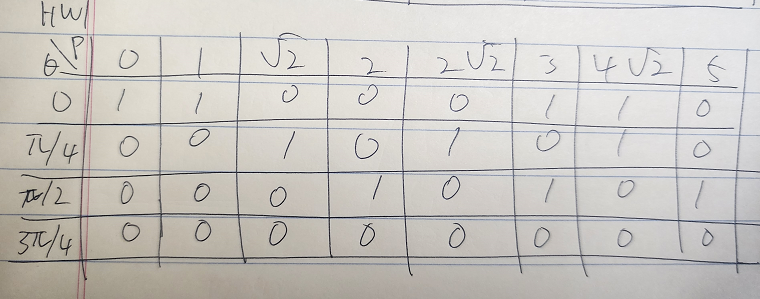 HW1
θ\P 0 1 √2 2 2√2 3 4√2 5
0 1 1 0 0 0 1 1 0
π/4 0 0 1 0 1 0 1 0
π/2 0 0 0 1 0 1 0 1
3π/4 0 0 0 0 0 0 0 0